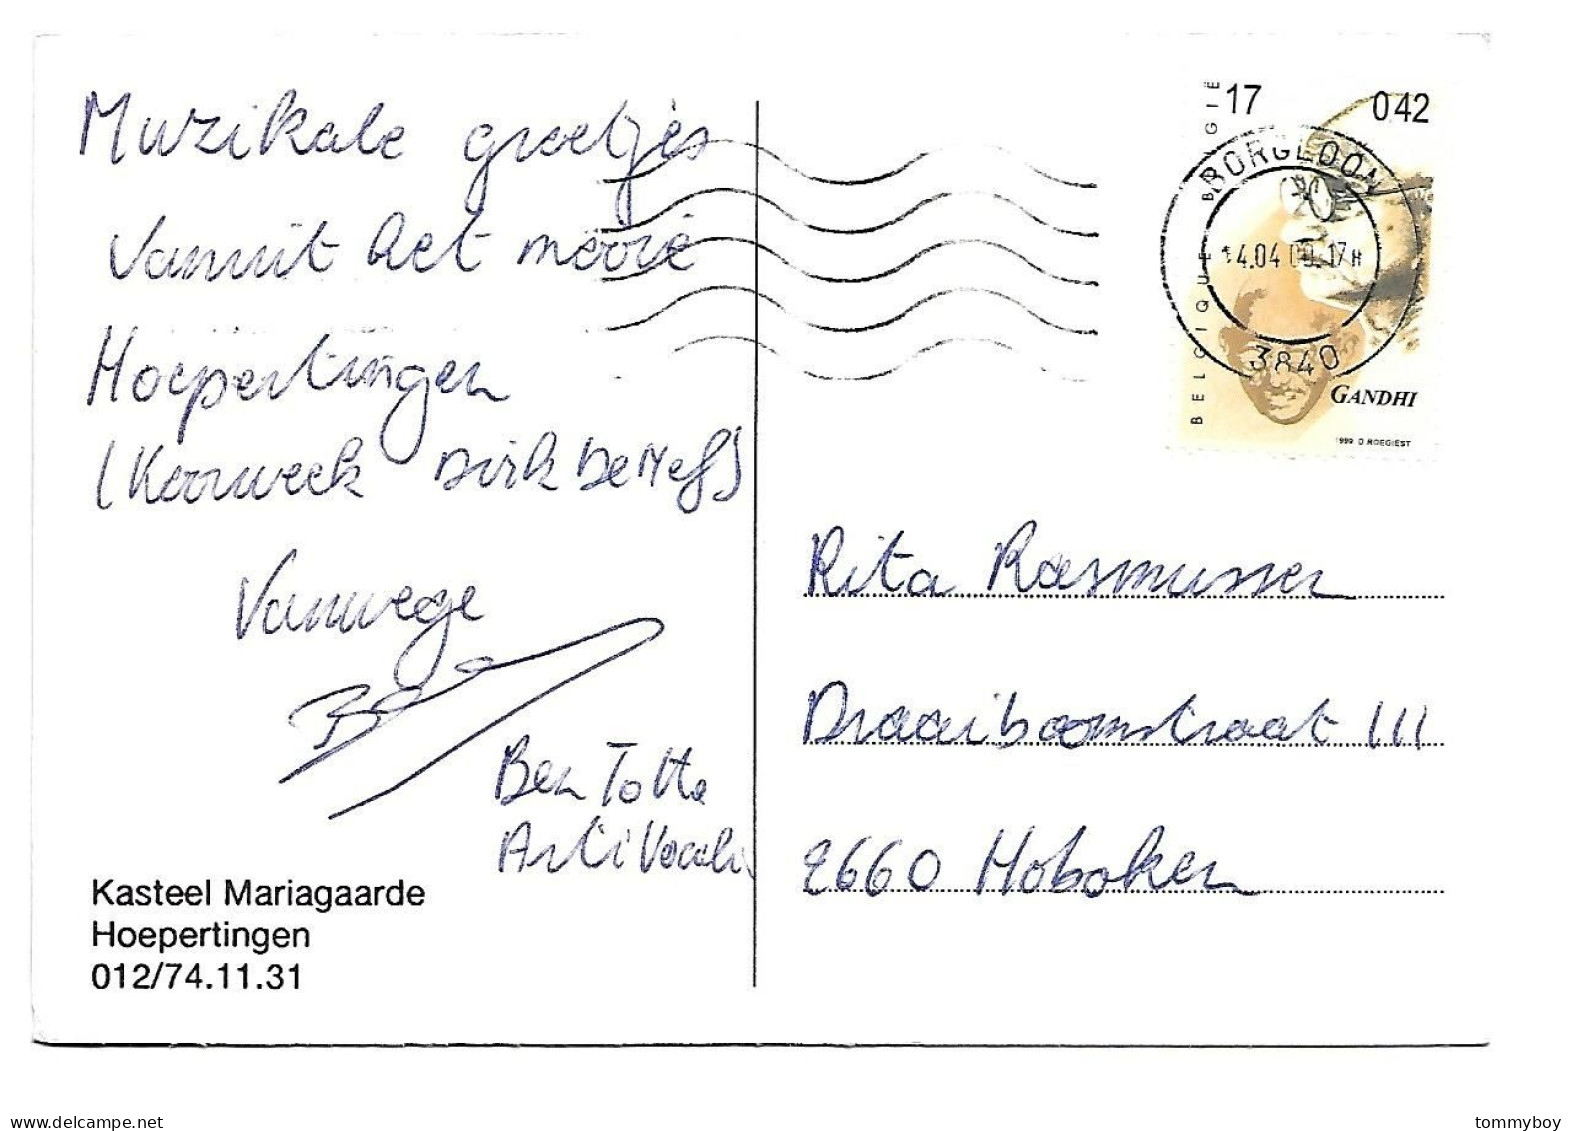 Muzikale groetjes
vanuit het mooie
Hoepertingen
(Koorweek Dirk De Nef)
Vanwege
Ben Totte
Arti Vocali
Kasteel Mariagaarde
Hoepertingen
012/74.11.31
BELGIQUE BELGIË
17
042
BORGLOON
14.04 00. 17H
3840
GANDHI
1999 D. ROEGIEST
Rita Rasmussen
Draaiboomstraat 111
2660 Hoboken
delcampe.net
tommyboy